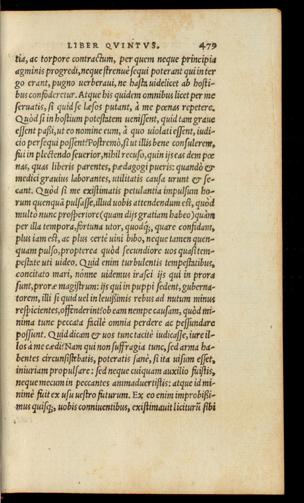 LIBER QVINTVS. 479
tiæ, ac torpore contractum, per quem neque principia
agminis progredi, neque strenuè sequi poterant qui inter
go erant, pugno uerberaui, ne hasta uidelicet ab hosti-
bus confoderetur. Atque his quidem omnibus licet per me
seruatis, si quid se læsos putant, à me pœnas repetere.
Quòd si in hostium potestatem uenissent, quid tam graue
essent passi, ut eo nomine eum, à quo uiolati essent, iudi-
cio persequi possent? Postremò, si ut illis bene consulerem,
fui in plectendo seuerior, nihil recuso, quin ijs eas dem pœ
nas, quas liberis parentes, pædagogi pueris: quandò &
medici grauius laborantes, utilitatis causa urunt & se-
cant. Quòd si me existimatis petulantia impulsum ho-
rum quenquã pulsasse, illud uobis attendendum est, quòd
multò nunc prosperiore (quam dijs gratiam habeo) quàm
per illa tempora, fortuna utor, quodq;, quare confidam,
plus iam est, ac plus certè uini bibo, neque tamen quen-
quam pulso, propterea quòd secundiore uos quasi tem-
pestate uti uideo. Quid enim turbulentis tempestatibus,
concitato mari, nónne uidemus irasci ijs qui in prora
sunt, proræ magistrum: ijs qui in puppi sedent, guberna-
torem, illi si quid uel in leuissimis rebus ad nutum minus
respicientes, offenderint? ob eam nempe causam, quòd mi-
nima tunc peccata facilè omnia perdere ac pessundare
possunt. Quid dicam & uos tunc tacitè iudicasse, iure il-
los à me cædi? Nam qui non suffragia tunc, sed arma ha-
bentes circunsistebatis, poteratis sanè, si ita uisum esset,
iniuriam propulsare: sed neque cuiquam auxilio fuistis,
neque mecum in peccantes animaduertistis: atque id mi-
nimè fuit ex usu uestro futurum. Ex eo enim improbissi-
mus quisq;, uobis conniuentibus, existimauit liciturũ sibi